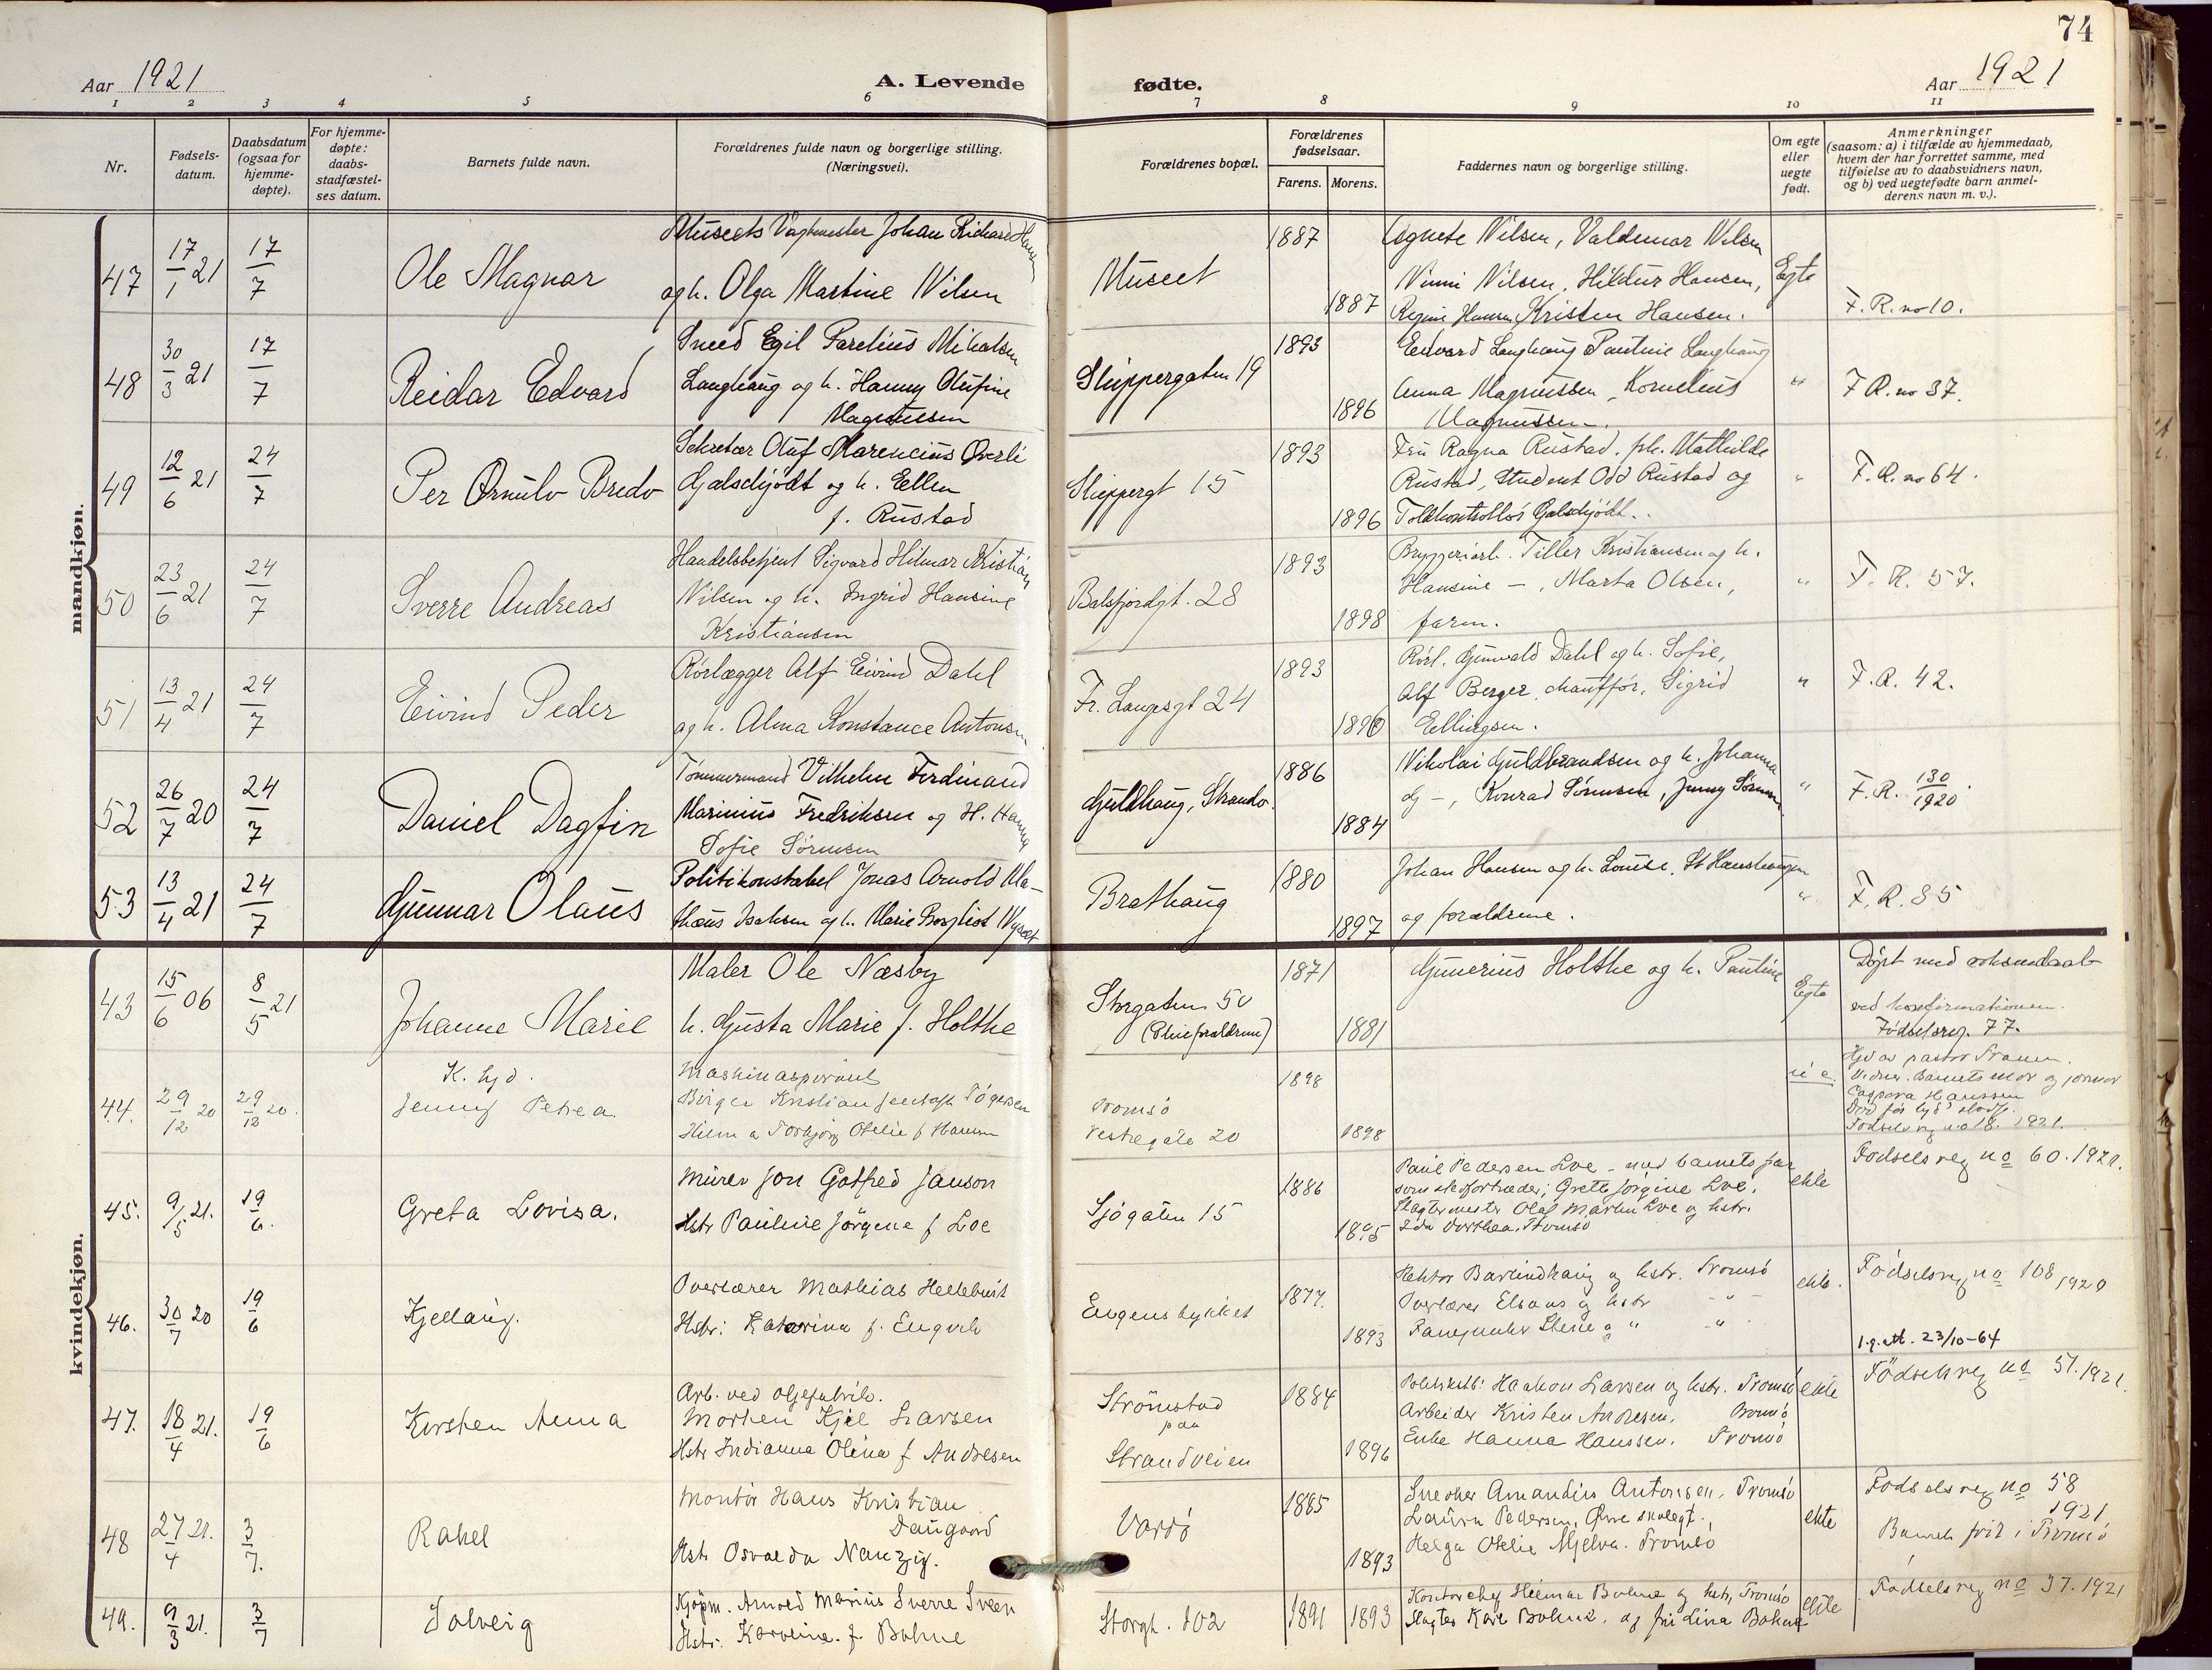 74
Aar 1921
A. Levende fødte.
Aar 1921
1 2 3 4 5 6 7 8 9 10 11
Nr.
Fødsels-
datum.
Daabsdatum
(ogsaa for
hjemme-
døpte).
For hjemme-
døpte:
daabs-
stadfæstel-
ses datum.
Barnets fulde navn.
Forældrenes fulde navn og borgerlige stilling.
(Næringsvei).
Forældrenes bopæl.
Forældrenes
fødselsaar.
Farens. Morens.
Faddernes navn og borgerlige stilling.
Om egte
eller
uegte
født.
Anmerkninger
(saasom: a) i tilfælde av hjemmedaab,
hvem der har forrettet samme, med
tilføielse av to daabsvidners navn,
og b) ved uegtefødte barn anmel-
derens navn m. v.).
mandkjøn.
47 17/1 21 17/7 Ole Magnar
Museets Vagtmester Johan Richard Hansen
og h. Olga Martine Nilsen
Museet 1887 1887
Agnete Nilsen, Valdemar Nilsen
Vinni Nilsen, Hildur Hansen,
Regine Hansen, Kristen Hansen.
Egte F. R. no 10.
48 30/3 21 17/7 Reidar Edvard
Sned Egil Parelius Mikalsen
Langhaug og h. Hanny Olufine
Magnussen
Skippergaten 19 1893 1896
Edvard Langhaug Pauline Langhaug
Anna Magnussen, Kornelius
Magnussen.
" F R. no 37.
49 12/6 21 24/7 Per Ørnulv Bredo
Sekretær Oluf Marencius Øverli
Gjælschjødt og h. Ellen
f. Rustad
Skippergt 15 1893 1896
Fru Ragna Rustad, frk. Mathilde
Rustad, Student Odd Rustad og
Toldkontrollør Gjelschjødt.
" F. R. no 64.
50 23/6 21 24/7 Sverre Andreas
Handelsbetjent Sigvard Hilmar Kristian
Nilsen og h. Ingrid Hansine
Kristiansen
Balsfjordgt. 28 1893 1898
Bryggeriarb. Tiller Kristiansen og h.
Hansine –, Marta Olsen,
faren.
" F. R. 57.
51 13/4 21 24/7 Eivind Peder
Rørlægger Alf Eivind Dahl
og h. Alma Konstance Antonsen
Fr. Langesgt 24 1893 1890
Rørl. Gunvald Dahl og h. Sofie,
Alf Berger, chauffør, Sigrid
Ellingsen.
" F. R. 42.
52 26/7 20 24/7 Daniel Dagfin
Tømmermand Vilhelm Ferdinand
Marinius Fredriksen og H. Hanna
Sofie Sørensen
Guldhaug, Strandv. 1886 1884
Nikolai Guldbrandsen og h. Johanna
G –, Konrad Sørensen, Jenny Sørensen
" F. R. 130/1920
53 13/4 21 24/7 Gunnar Olaus
Politikonstabel Jonas Arnold Ma-
thæus Isaksen og h. Marie Borglist
Brathaug 1880 1897
Johan Hansen og h. Louise, St Hanshaugen
og forældrene.
" F. R. 35
kvindekjøn.
43 15/6 06 8/5 21 Johanne Marie
Maler Ole Næsby
h. Gusta Marie f. Holthe
Storgaten 50
(Pleieforældrene)
1871 1881
Gunerius Holthe og h. Pauline
Egte
Døpt med voksendaab
ved konfirmationen.
Fødselsreg. 77.
44. 29/12 20 29/12 20.
K. hjd.
Jenny Petrea
Maskinaspirant
Birger Kristian Tøgersen
a Torbjørg Otelie f Hansen
Tromsø
Vestregate 20
1898 1898
u e.
Hjd av pastor
Vidner. Barnets mor og jormor
Caspara Hanssen
Fødselsreg no 18. 1921.
45. 9/5 21. 19/6. Greta Lovisa.
Murer Jon Gotfred Janson
Hstr Pauline Jørgene f Loe
Sjøgaten 15 1886 1895
Paul Pedersen Loe – med barnets far
som stedfortræder; Grete Jørgine Loe.
Slagtermester Olaf Martin Loe og hstr.
Ida Dorthea, Tromsø
ekte Fødselsreg no 60. 1921.
46. 30/7 20 19/6 Kjellaug.
Overlærer Mathias Hellebust
Hstr: Katarina f. Engvik
Eugenstykket 1877. 1893
Rektor Barlindhaug og hstr. Tromsø
Overlærer Elsaus og hstr - " -
Fanejunker Stene og " - " -
ekte. Fødselsreg no 108 1920
1.g.att. 23/10-64
47. 18/4 21. 19/6 Kirsten Anna
Arb. ved oljefabrik.
Morten Kjil Larsen
Hstr Indianna Olina f Andresen
Strømstad
paa
Strandveien
1884 1896
Politikstb: Haakon Larsen og hstr. Tromsø
Arbeider Kristen Andresen. Tromsø
Enke Hanna Hanssen. Tromsø
ekte Fødselsreg no 51. 1921.
48 27/4 21. 3/7. Rakel
Montør Hans Kristian
Daugaard
Hstr Osvalda Nanzig.
Vardø 1885 1893
Snedker Amandus Antonsen, Tromsø
Laura Pedersen, Øvre skolegt.,
Helga Otelie Mjelva. Tromsø
ekte Fødselsreg no 58
1921
Barnets født i Tromsø
49. 9/3 21. 3/7 Solveig
Kjøpm. Arnold Marius Sverre Sveen
Hstr. Karoline. f. Bohne
Storgt. 102 1891 1893
Kontorchef Hilmar Bohne og hstr, Tromsø
Slagter Kåre Bohne, og fru Lina Bohne
ekte Fødselsreg no 37. 1921